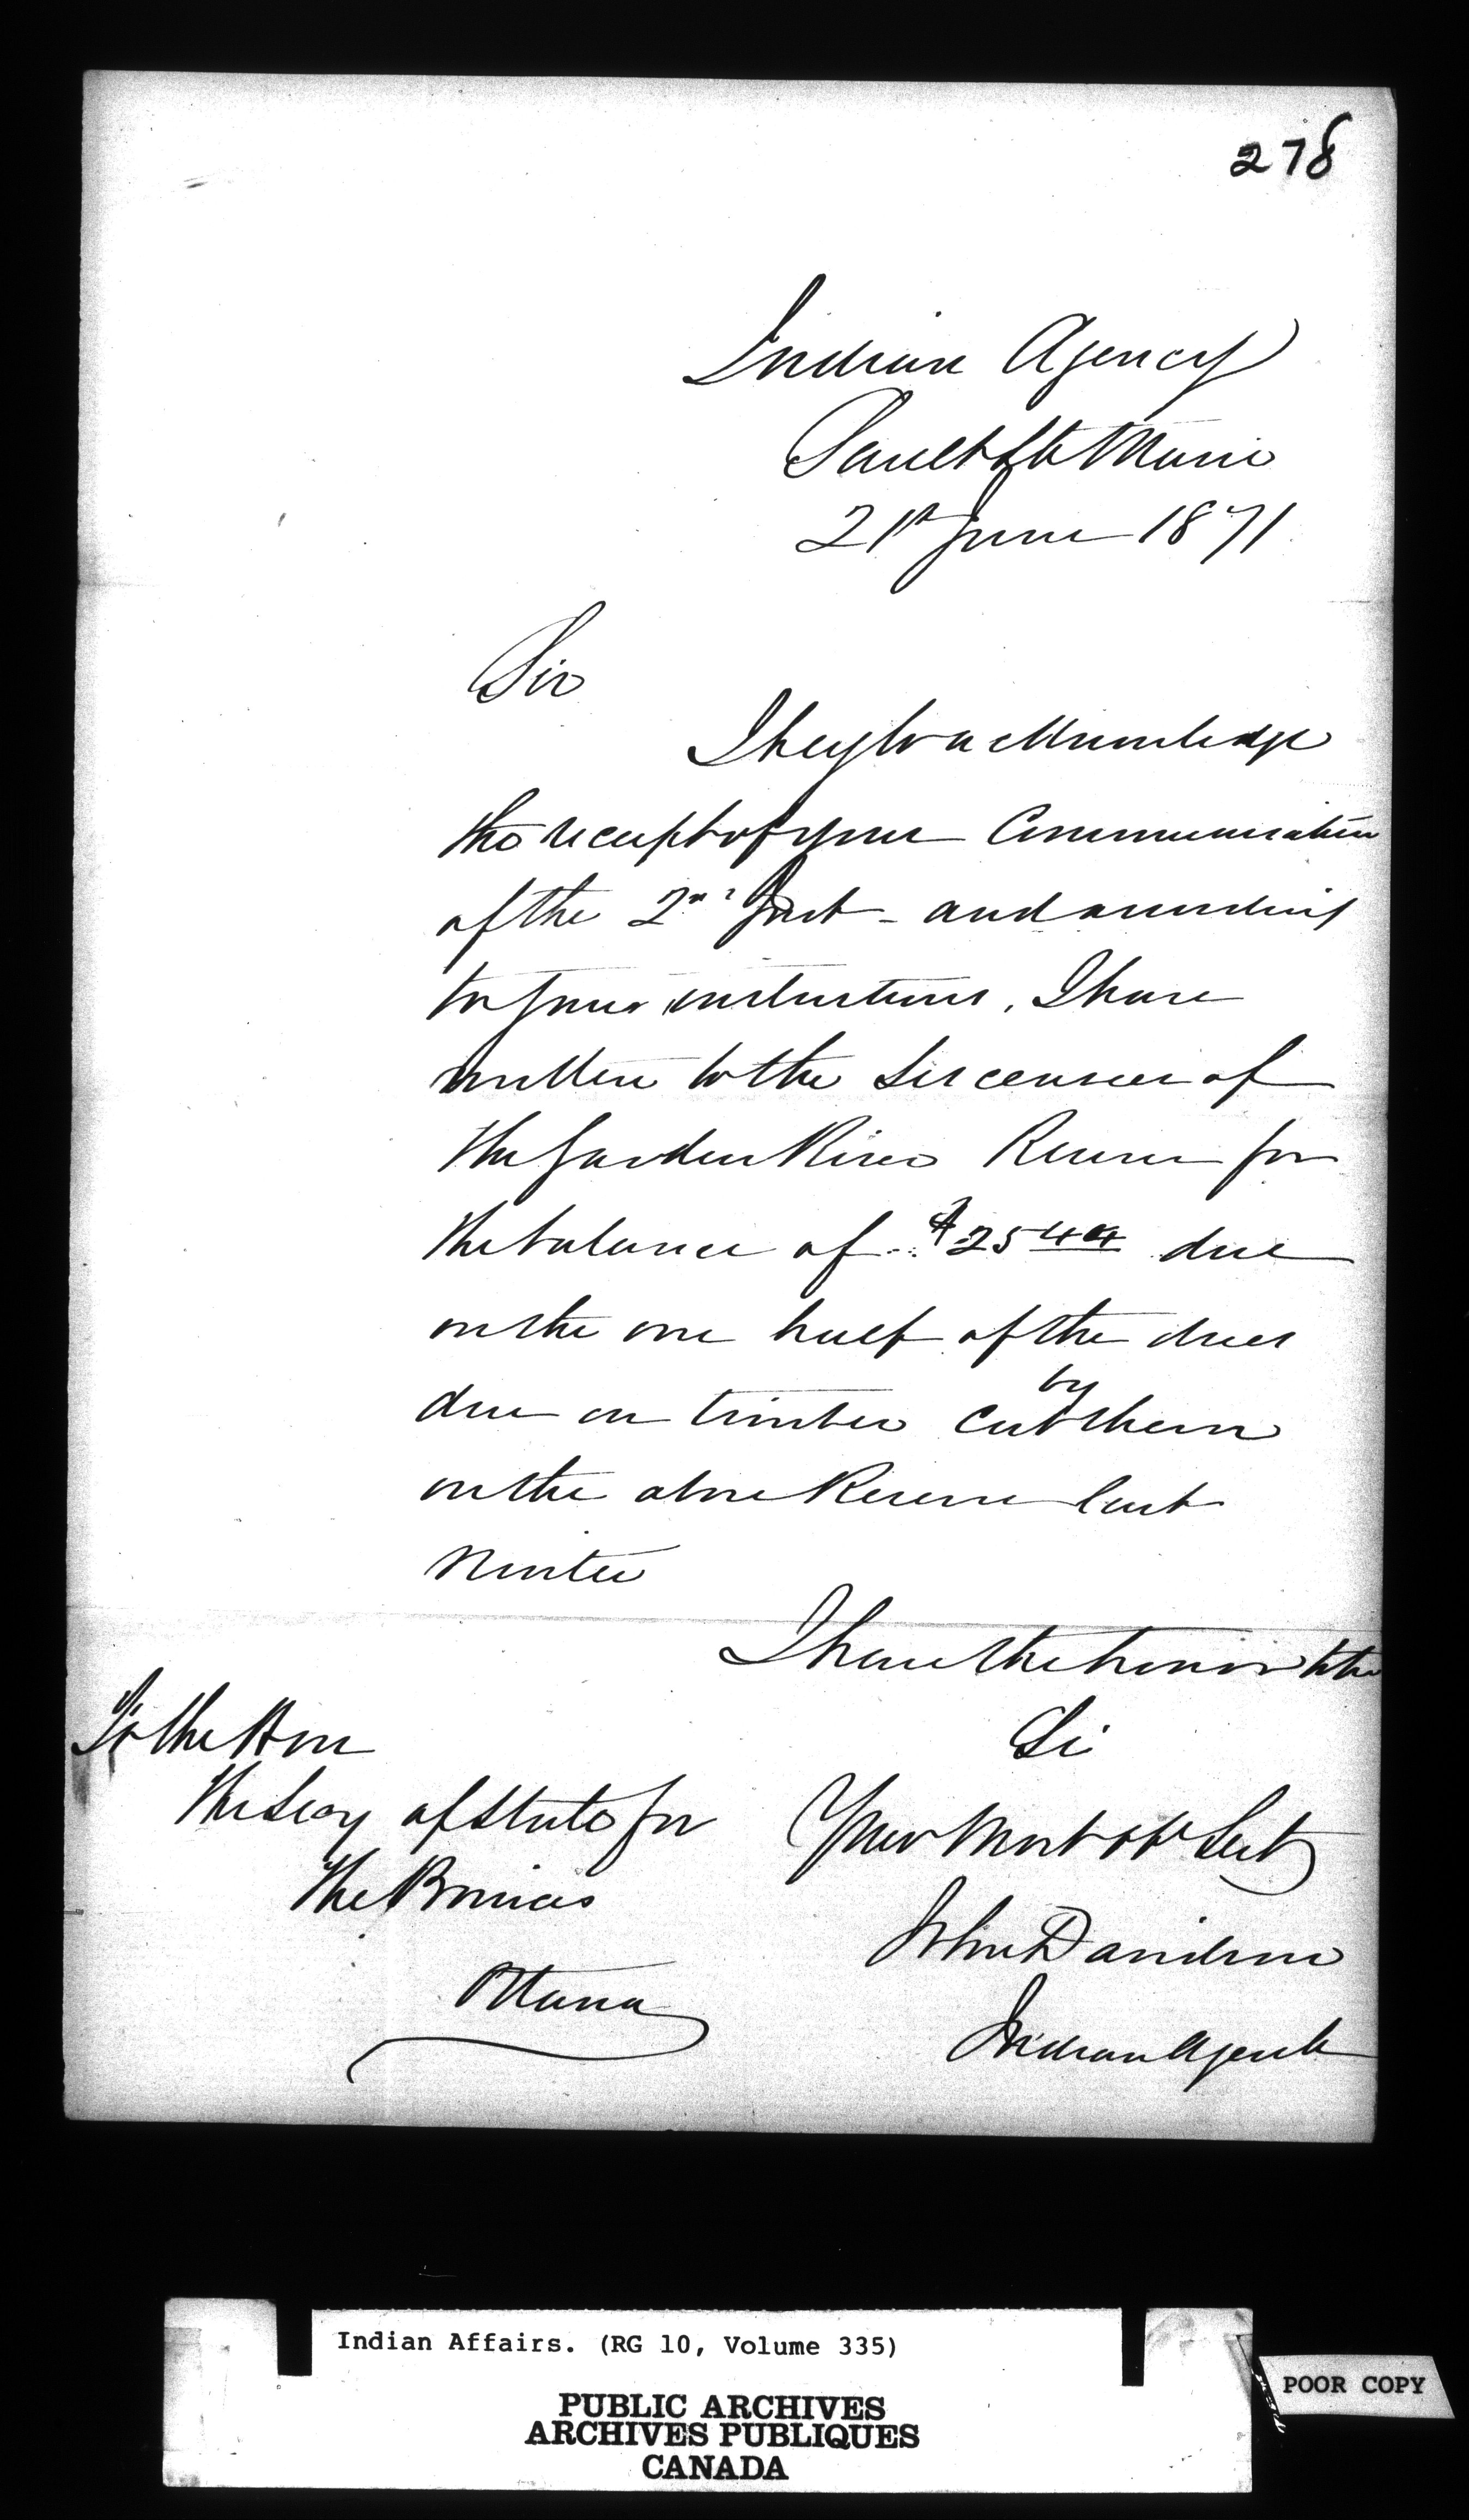 278
Indian Agency
Sault Ste Marie
21st June 1871
Sir
I beg to acknowledge
the receipt of your Communication
of the 2nd Inst - and according
to your instructions, I have
written to the Liscensees of
the Garden River Reserve for
the balance of $25 44 due
on the one half of the dues
due on timber cut by them
on the above Reserve last
Winter
I have the honor to be
Sir
Your Most Obt Svt
John Davidson
Indian Agent
To the Hon
The Secy of State for
The Provinces
Ottawa
Indian Affairs. (RG 10, Volume 335)
PUBLIC ARCHIVES
ARCHIVES PUBLIQUES
CANADA
POOR COPY